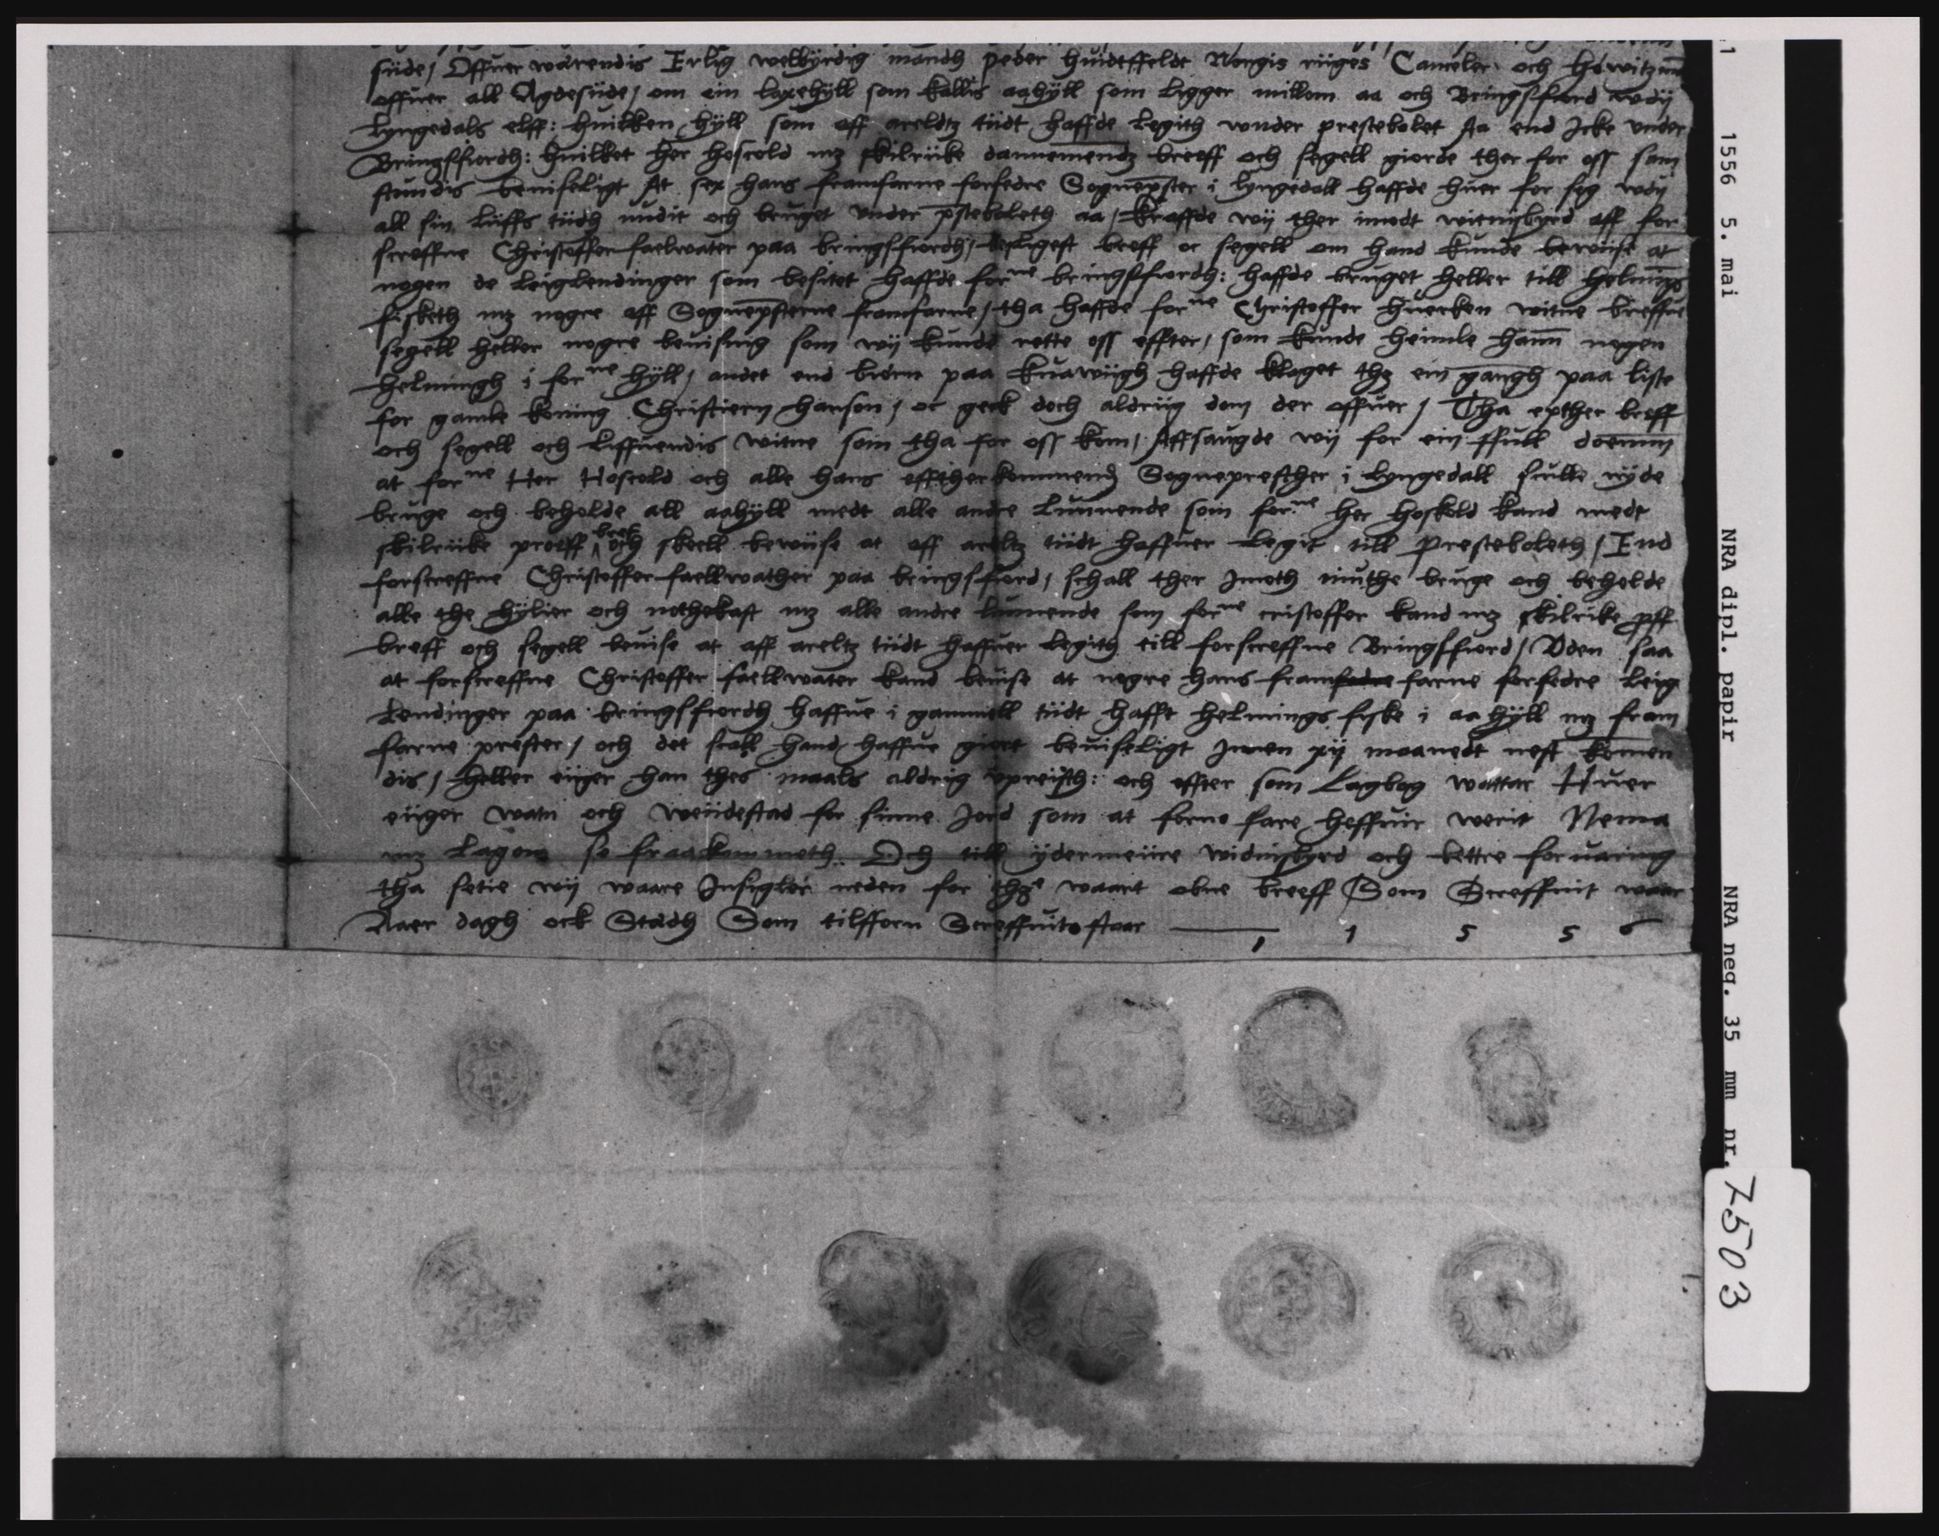 siide / Offuer wærendis Erlig welbyrdig mandh peder huidtffeldt Norgis riiges Canceler och høwitzmn
offuer all Agdesiide / om ein laxehyll som kallis aahyll som ligger millom aa och Bringsfiord wdij
Lyngedals elff: huilken hyll som aff areldtz tiidt haffde legith wnder prestebolet Aa end icke vnder
Bringsfiordh: huilket her hoscold mz skilriike dannemendz breeff och segell giorde ther for oss sam
stundis beuiseligt At sex hans framfarne forfedre Sognepster i lyngedall haffde huer for seg wdij
all sin liiffs tiidh nudit och bruget vnder psteboleth aa / kraffde wij ther imodt witnisbyrd aff for
screffne Christoffer faelwater paa bringsfiordh / desligest breff oc segell om hand kunde bewise at
nogen de leiglendinger som besitet haffde forne bringsfiordh: haffde bruget heller till helnings
fisketh mz nogre aff Sognepsterne framfarne / tha haffde forne Christoffer huerken witne breffue
segell heller nogre beuising som wij kunde rette oss effter / som kunde heimle hann nogen
helningh i forne hyll / andet end biørn paa kuawiigh haffde klaget thz ein gangh paa liste
for gamle koning Christiern hanson / oc geck doch aldriig dom der offuer / Tha epther breff
och segell och liffuendis witne som tha for oss kom / Affsaugde wij for ein ffull doemm
at forne Her Hoscold och alle hans effterkommend Sogneprester i lyngedall sculle nyde
bruge och beholde all aahyll medt alle andre lunnende som forne her hoskold kand medt
skilriike proeff breff och skeell bewise at aff areltz tiidt haffuer legit till presteboleth / End
forscreffne Christoffer faellwather paa bringsfiord / schall ther Imoth niuthe bruge och beholde
alle the hylier och nothekast mz alle andre lunnende som forne cristoffer kand mz skilrike pff
breff och segell beuise at aff areltz tiidt haffuer legith till forscreffne Bringsfiord / Vden saa
at forscreffne Christoffer faellwater kand beuise at nogre hans framfedre farne forfedre leig
lendinger paa bringsfiordh haffue i gammell tiidt hafft helnings fiske i aa hyll mz fram
farne prester / och det scall hand haffue giort beuiseligt innen xij maanedt nest komen
dis / heller eiiger han thes maals aldrig vpreisth: och effter som Lagbog wattar Huer
eiiger watn och weiidestad for sinne Jord som at forno fare heffuir werit Nema
mz lagom se fraakommeth. Och till ydermeiire widnisbyrd och bettre foruaring
tha setie wij waare Insigler neden for thz waart obne breeff Som Screffuit waar
Aaer dagh ock Stædh Som tilfforn Screffuit staar 1 5 5 6
1 1556 5. mai NRA dipl. papir NRA neg. 35 mm nr. 7503